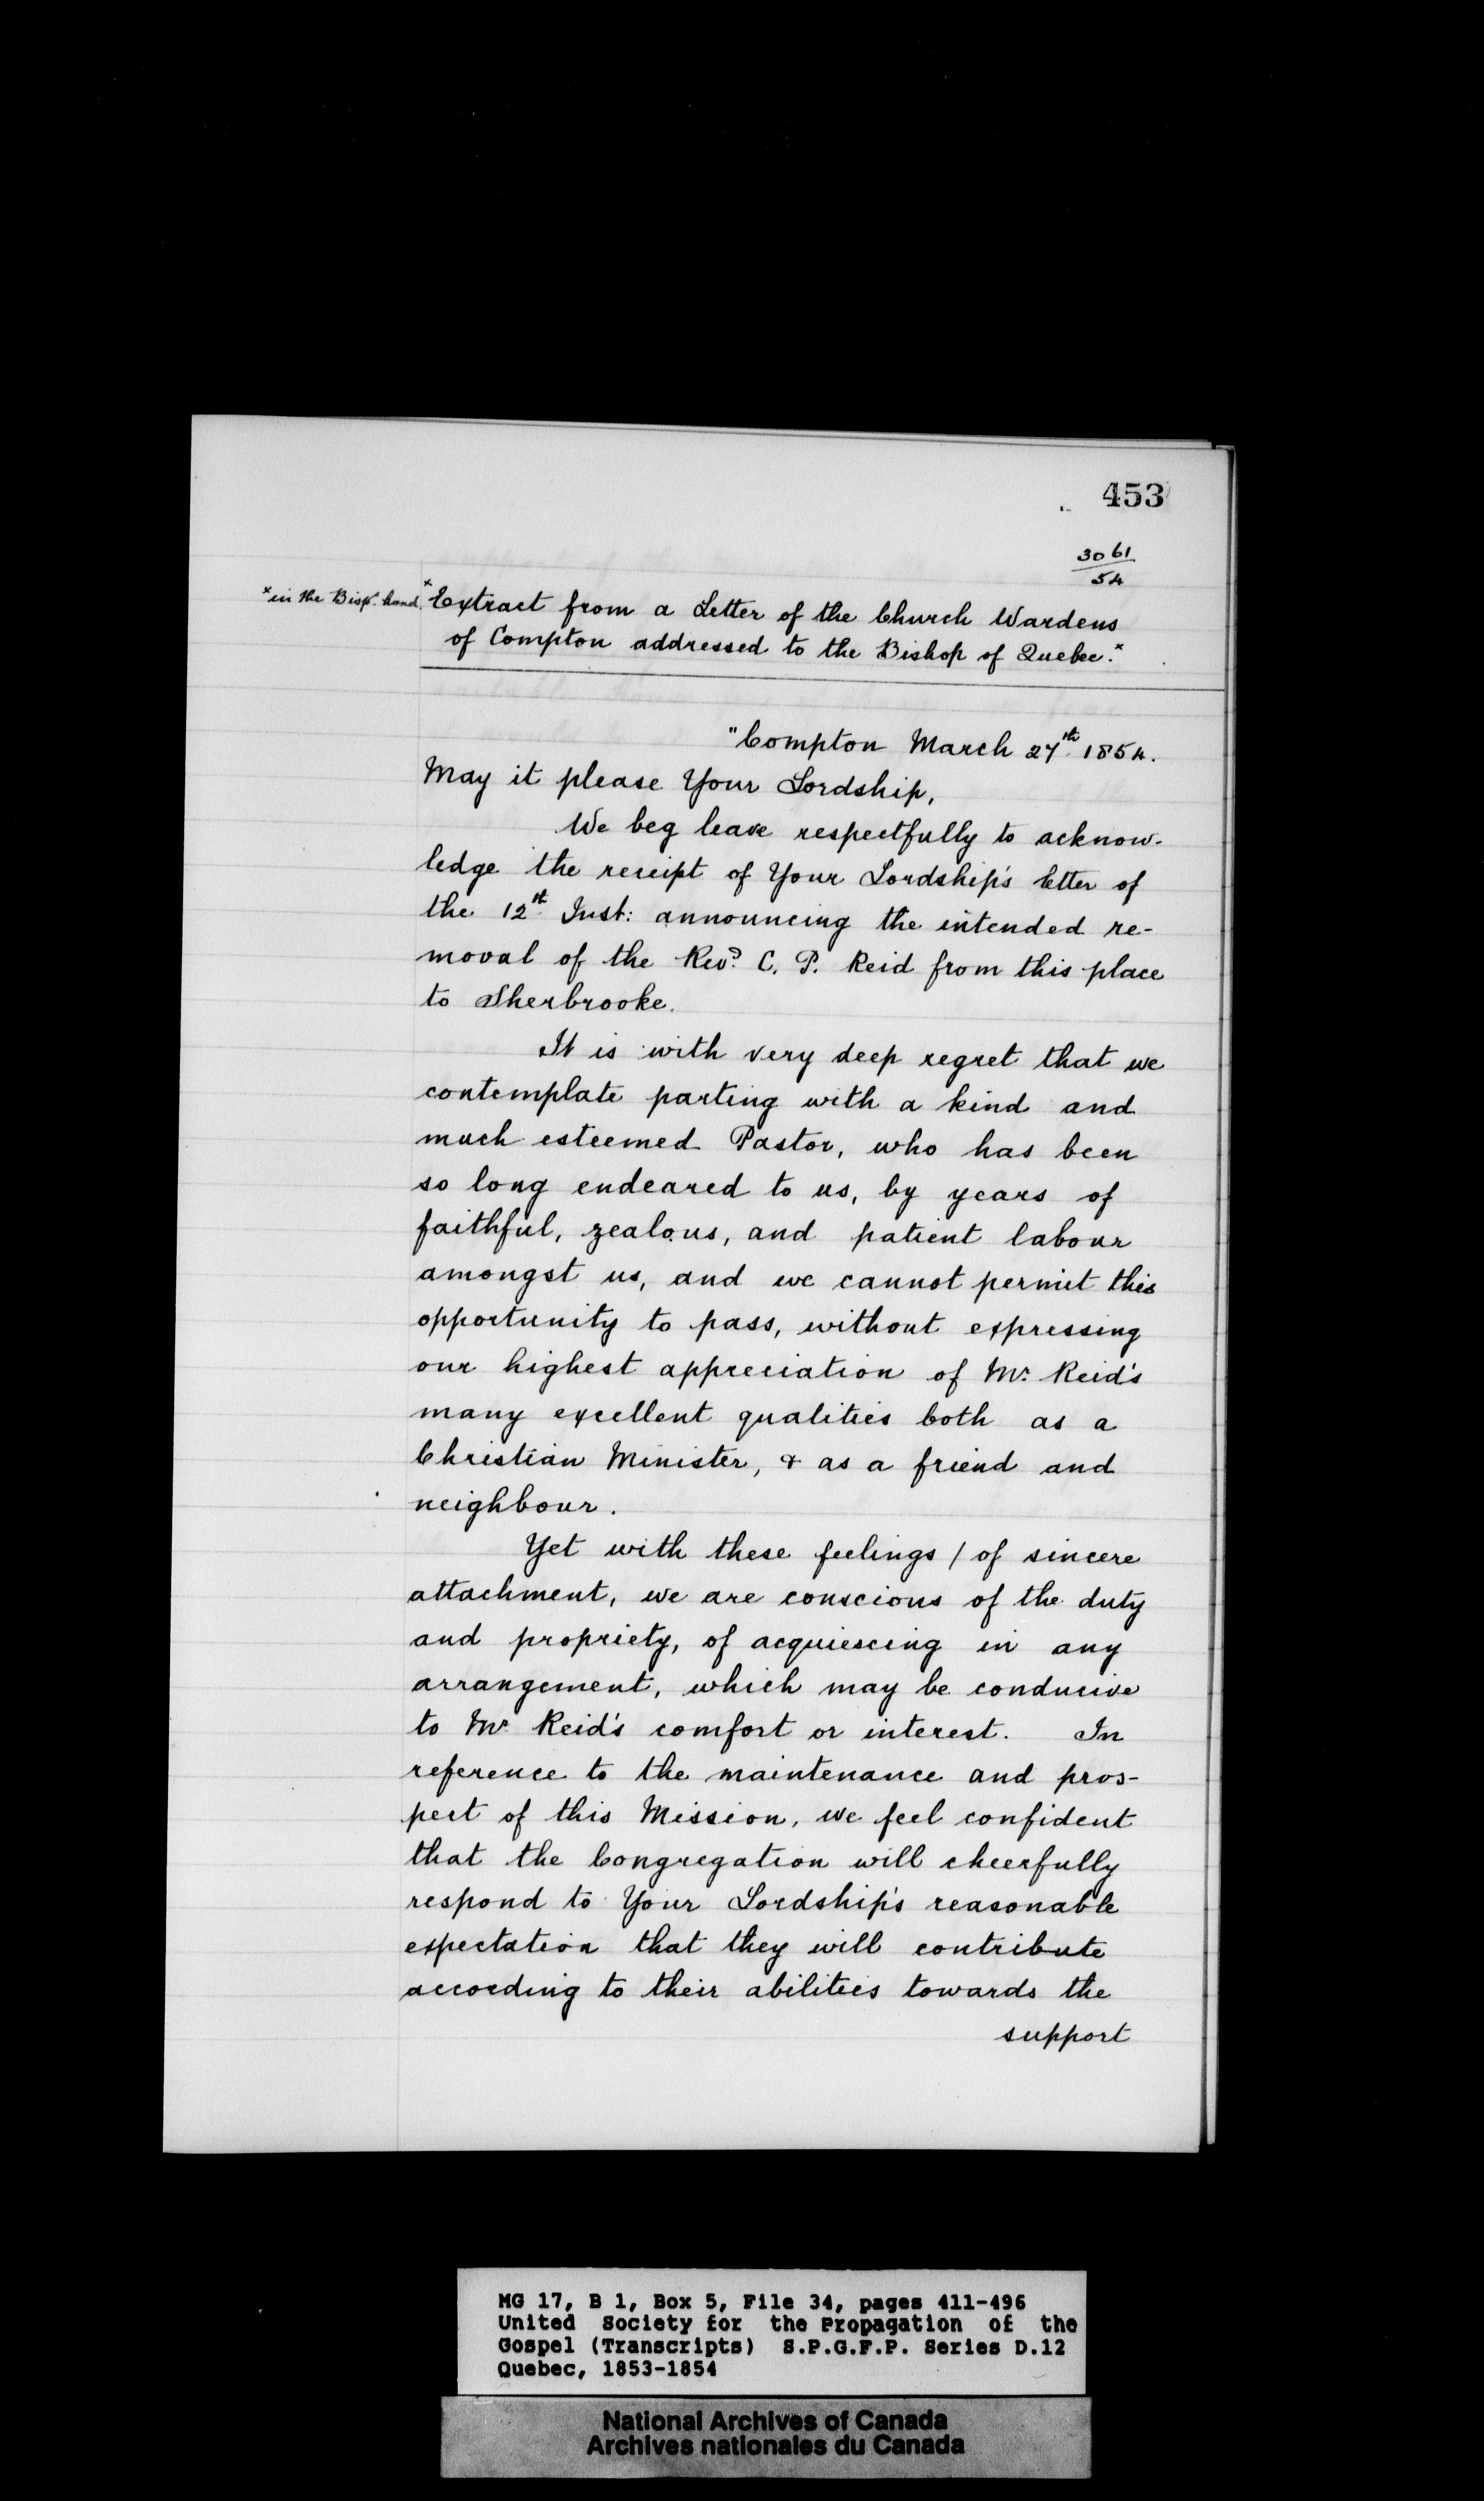 453
3061
54
*in the Bisp. hand. *Extract from a Letter of the Church Wardens
of Compton addressed to the Bishop of Quebec.*
"Compton March 27th 1854.
May it please Your Lordship,
We beg leave respectfully to acknow-
ledge the receipt of Your Lordship's letter of
the 12th Inst: announcing the intended re-
moval of the Revd. C. P. Reid from this place
to Sherbrooke.
It is with very deep regret that we
contemplate parting with a kind and
much esteemed Pastor, who has been
so long endeared to us, by years of
faithful, zealous, and patient labour
amongst us, and we cannot permit this
opportunity to pass, without expressing
our highest appreciation of Mr. Reid's
many excellent qualities both as a
Christian Minister, & as a friend and
neighbour.
Yet with these feelings / of sincere
attachment, we are conscious of the duty
and propriety, of acquiescing in any
arrangement, which may be conducive
to Mr. Reid's comfort or interest. In
reference to the maintenance and pros-
pect of this Mission, we feel confident
that the Congregation will cheerfully
respond to Your Lordship's reasonable
expectation that they will contribute
according to their abilities towards the
support
MG 17, B 1, Box 5, File 34, pages 411-496
United Society for the Propagation of the
Gospel (Transcripts) S.P.G.F.P. Series D.12
Quebec, 1853-1854
National Archives of Canada
Archives nationales du Canada